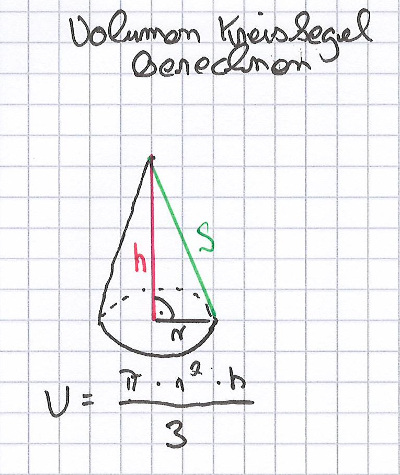 Volumen Kreiskegel
Berechnen
h
S
r
V = π · r² · h / 3